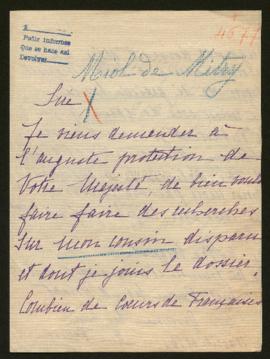 Pedir informes
Que se hace así
Devolver
4677
Miol de Mitry
Sire
Je viens demander à
l'auguste protection de
Votre Majesté, de bien vouloir
faire faire des recherches
sur mon cousin disparu
et dont je joins le dossier.
Combien de Cœurs de Françaises